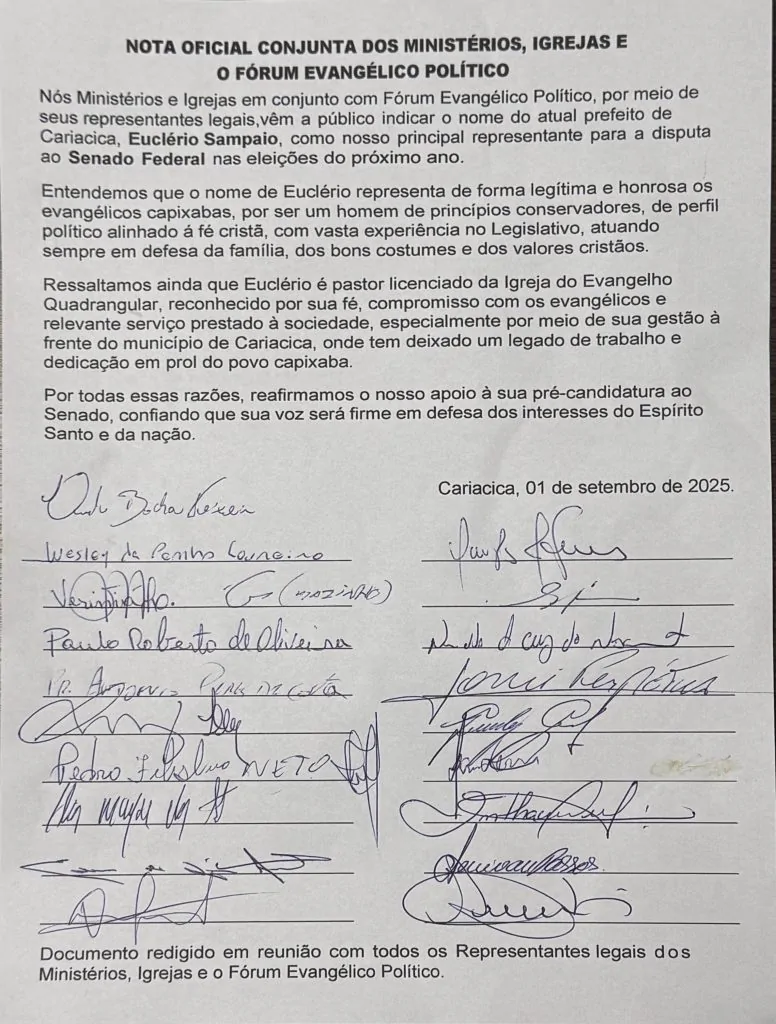 NOTA OFICIAL CONJUNTA DOS MINISTÉRIOS, IGREJAS E
O FÓRUM EVANGÉLICO POLÍTICO
Nós Ministérios e Igrejas em conjunto com Fórum Evangélico Político, por meio de
seus representantes legais,vêm a público indicar o nome do atual prefeito de
Cariacica, Euclério Sampaio, como nosso principal representante para a disputa
ao Senado Federal nas eleições do próximo ano.
Entendemos que o nome de Euclério representa de forma legítima e honrosa os
evangélicos capixabas, por ser um homem de princípios conservadores, de perfil
político alinhado á fé cristã, com vasta experiência no Legislativo, atuando
sempre em defesa da família, dos bons costumes e dos valores cristãos.
Ressaltamos ainda que Euclério é pastor licenciado da Igreja do Evangelho
Quadrangular, reconhecido por sua fé, compromisso com os evangélicos e
relevante serviço prestado à sociedade, especialmente por meio de sua gestão à
frente do município de Cariacica, onde tem deixado um legado de trabalho e
dedicação em prol do povo capixaba.
Por todas essas razões, reafirmamos o nosso apoio à sua pré-candidatura ao
Senado, confiando que sua voz será firme em defesa dos interesses do Espírito
Santo e da nação.
Cariacica, 01 de setembro de 2025.
Wesley da
(MAZINHO)
Paulo Roberto de Oliveira
PR. ANTONIO
Pedro NETO
Documento redigido em reunião com todos os Representantes legais dos
Ministérios, Igrejas e o Fórum Evangélico Político.